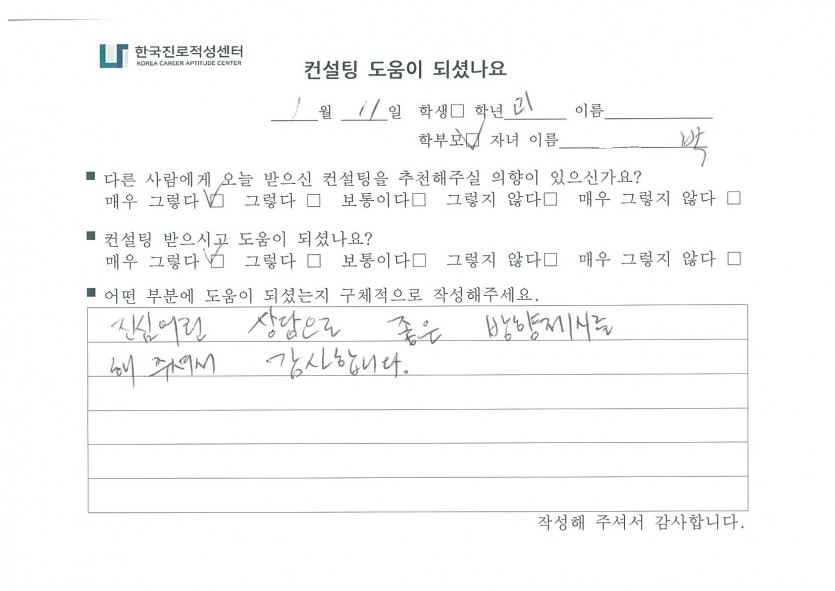 한국진로적성센터
KOREA CAREER APTITUDE CENTER
컨설팅 도움이 되셨나요
1월 11일 학생□ 학년 이름
학부모☑ 자녀 이름 박
■ 다른 사람에게 오늘 받으신 컨설팅을 추천해주실 의향이 있으신가요?
매우 그렇다 ☑ 그렇다 □ 보통이다□ 그렇지 않다□ 매우 그렇지 않다 □
■ 컨설팅 받으시고 도움이 되셨나요?
매우 그렇다 ☑ 그렇다 □ 보통이다□ 그렇지 않다□ 매우 그렇지 않다 □
■ 어떤 부분에 도움이 되셨는지 구체적으로 작성해주세요.
진심어린 상담으로 좋은 방향제시를
해 주셔서 감사합니다.
작성해 주셔서 감사합니다.